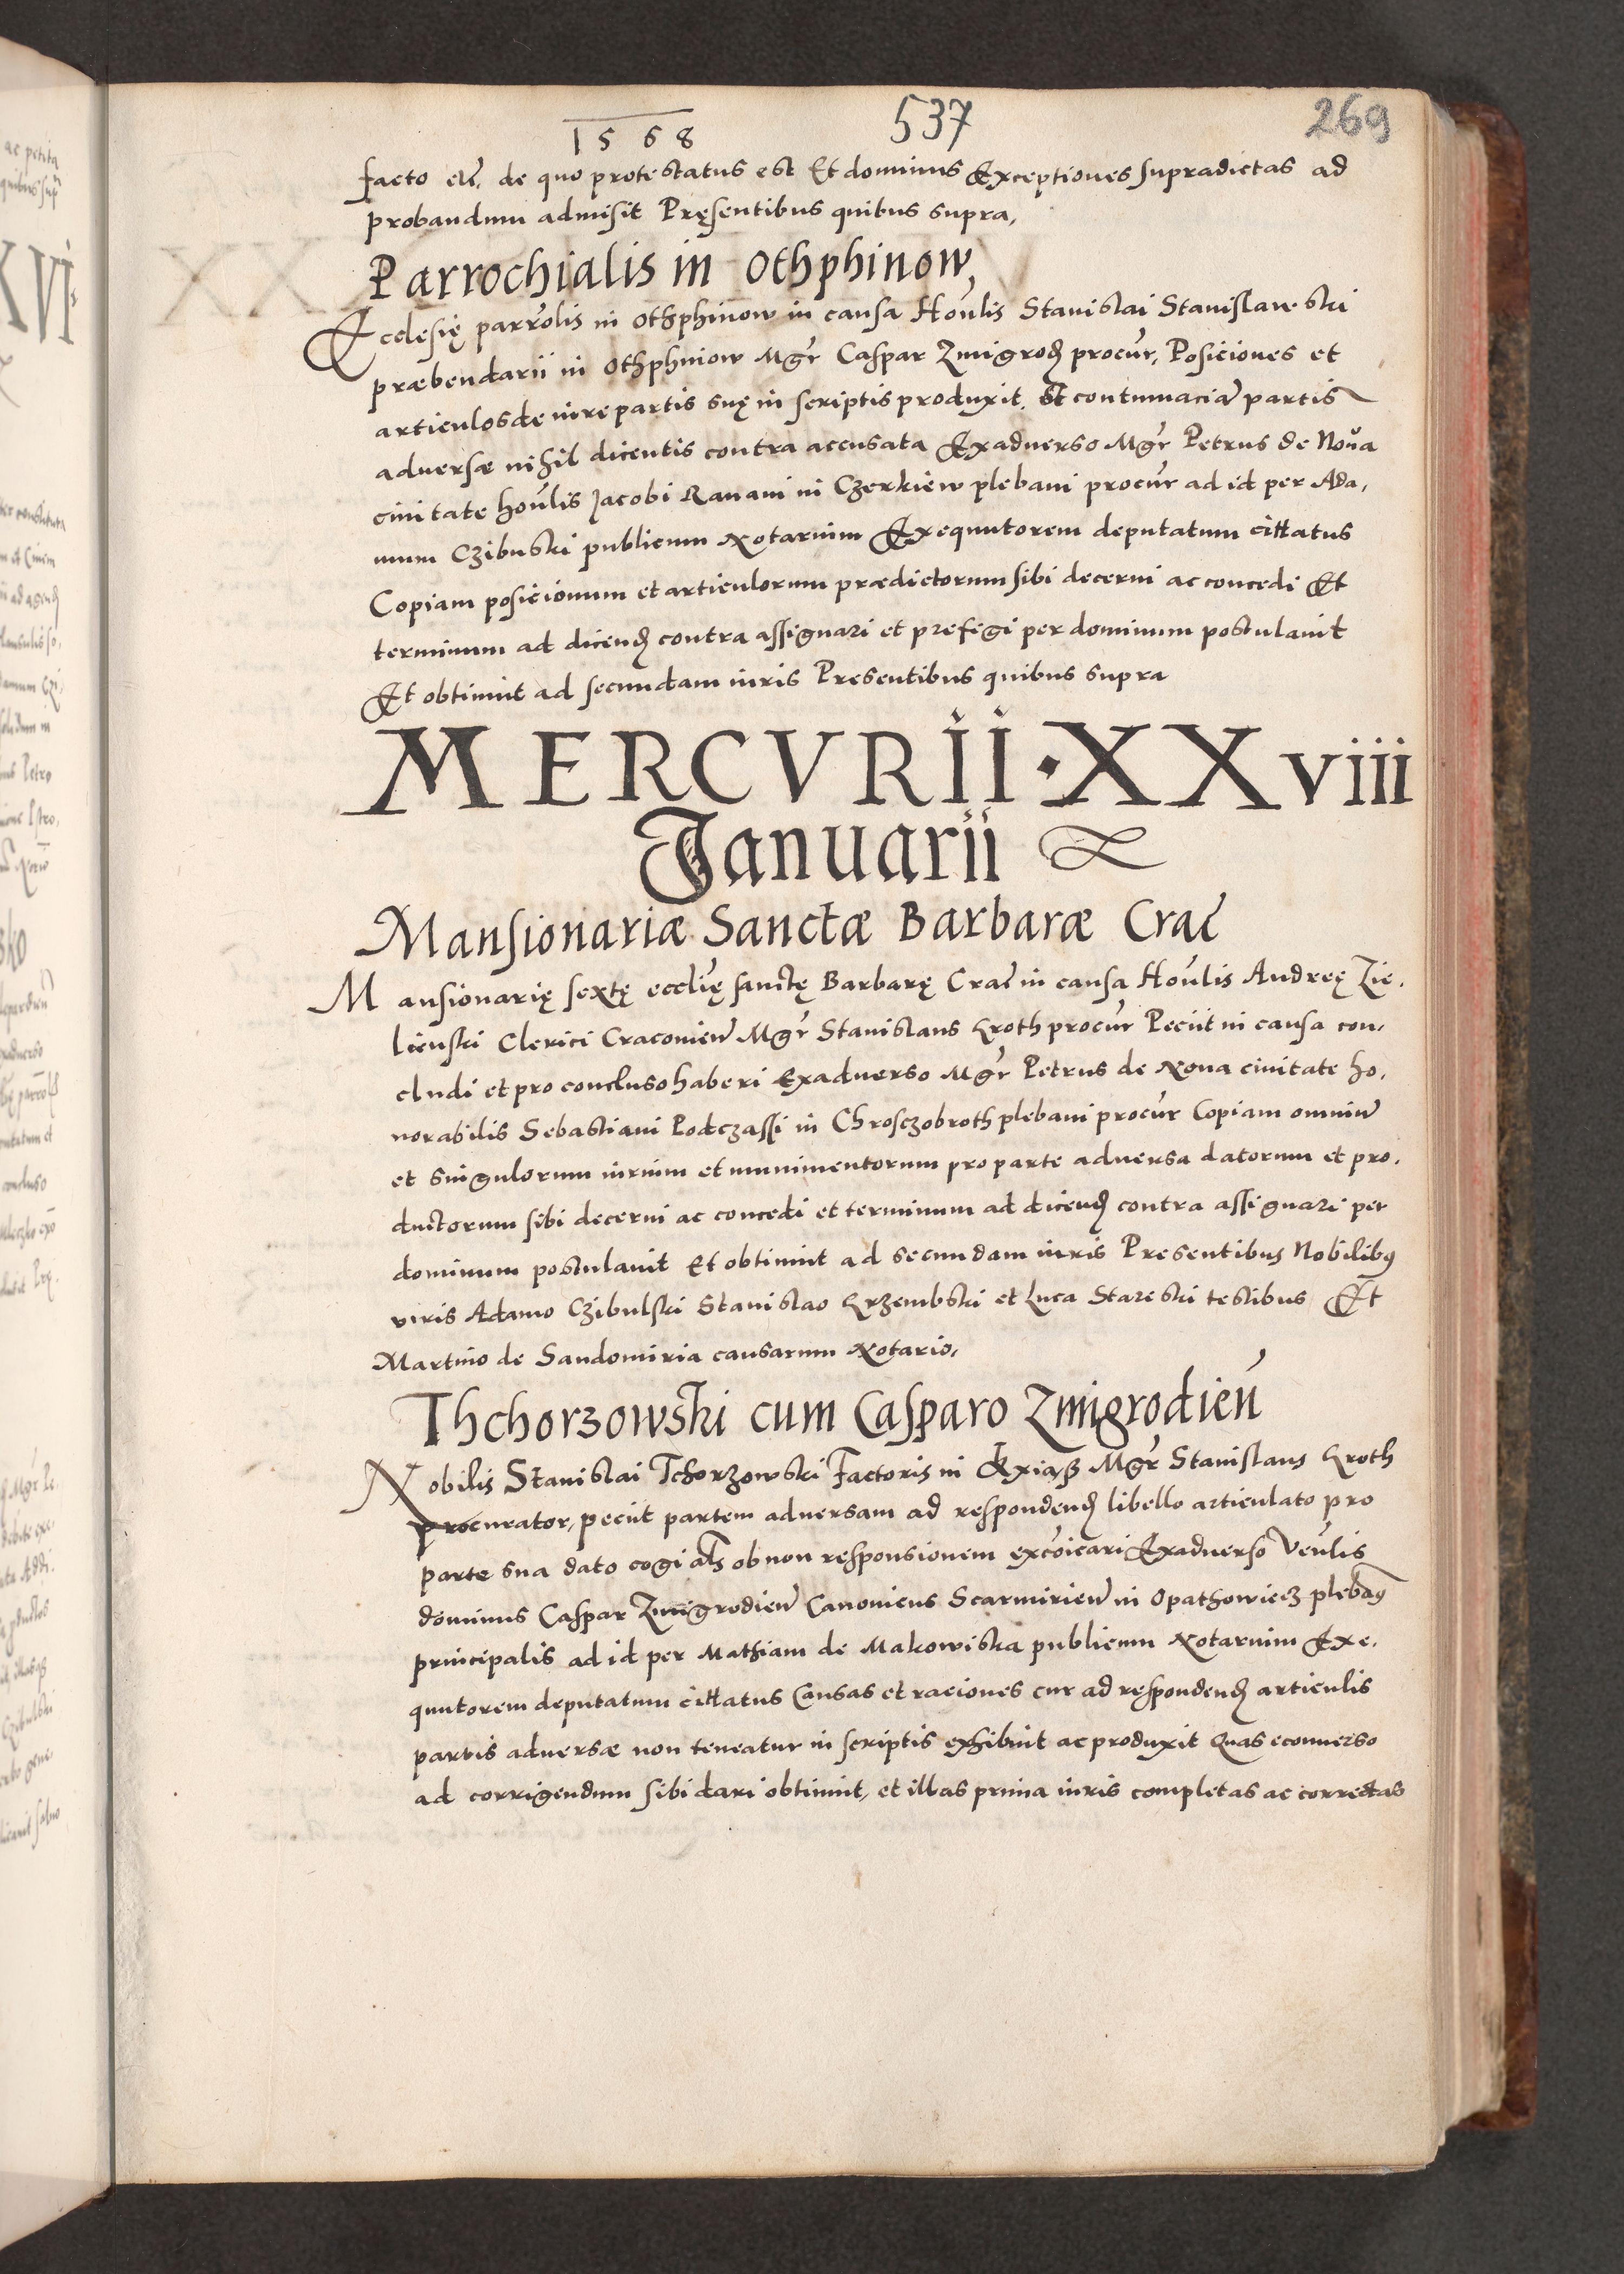 1568 537 269
facto etc̃. de quo protestatus est Et dominus Exceptiones supradictas ad
probandum admisit Pręsentibus quibus supra,
Parrochialis in Othphinow,
Ecclesię parrolis in Othphinow in causa Hon̄lis Stanislai Stanislawski
præbendarii in Othphiniow Mgr̄ Caspar Zmigrod procur̄, Posiciones et
articulos de iure partis suę in scriptis produxit. Et contumaciam̄ partis
adversæ nihil dicentis contra accusata Exadverso Mgr̄ Petrus de Nova
civitate hon̄lis Jacobi Ravani in Czerkiew plebani procur̄ ad id per Ada,
mum Czibuski publicum Notarium Exequutorem deputatum cittatus
Copiam posicionum et articulorum prædictorum sibi decerni ac concedi Et
terminum ad dicend contra assignari et prefigi per dominum postulavit
Et obtinuit ad secundam iuris Presentibus quibus supra
MERCVRII·XXviii
Januarii
Mansionariæ Sanctæ Barbaræ Crac̄
Mansionarię sextę ecclię sanctę Barbarę Crac̄ in causa Hon̄lis Andreę Zie,
lienski Clerici Craconien̄ Mgr̄ Stanislaus Kroth procur̄ Peciit in causa con,
cludi et pro concluso haberi Exadverso Mgr̄ Petrus de Nova civitate ho,
norabilis Sebastiani Podczassi in Chrosczobroth plebani procur̄ Copiam omniu̅
et singulorum iurium et munimentorum pro parte adversa datorum et pro,
ductorum sibi decerni ac concedi et terminum ad dicend contra assignari per
dominum postulavit Et obtinuit ad secundam iuris Presentibus Nobilibꝫ
viris Adamo Czibulski Stanislao Krzembski et Luca Stareski testibus Et
Martino de Sandomiria causarum Notario,
Thchorzowski cum Casparo Zmigrodien̄
Nobilis Stanislai Tchorzowski Factoris in Mgr̄ Stanislaus Kroth
procurator, peciit partem adversam ad respondend libello articulato pro
parte sua dato cogi als̄ ob non responsionem excōicari Exadverso Ven̄lis
dominus Caspar Zmigrodien̄ Canonicus Scarmirien̄ in Opathowiecz plebanꝫ
principalis ad id per Mathiam de Makowiska publicum Notarium Exe,
quutorem deputatum cittatus Causas et raciones cur ad respondend articulis
partis adversæ non teneatur in scriptis exhibuit ac produxit Quas econverso
ad corrigendum sibi dari obtinuit, et illas prima iuris completas ac correctas